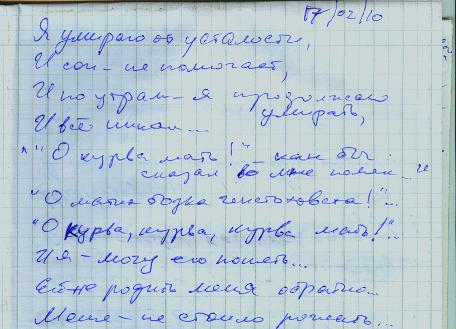 17/02/10
Я умираю от усталости,
И сон - не помогает,
И по утрам - я продолжаю
умирать,
И всё никак...
"О курва мать!" - как бы
сказал во мне поляк
"О матка бозка ченстоховска!"...
"О курва, курва, курва мать!"...
И я - могу его понять...
Ей не родить меня обратно...
Меня - не стоило рожать...